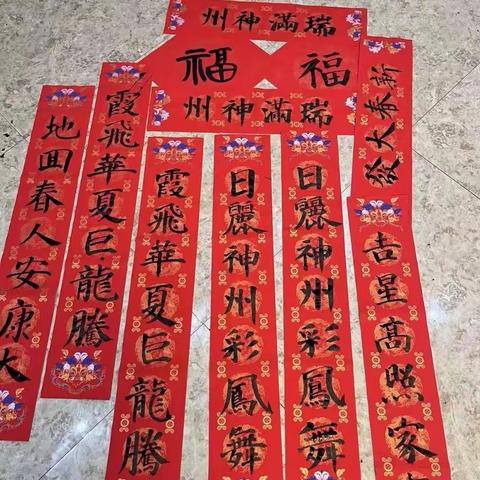 瑞滿神州
福 福
瑞滿神州
新春大發
吉星高照家
日麗神州彩鳳舞
日麗神州彩鳳舞
霞飛華夏巨龍騰
霞飛華夏巨龍騰
地回春人安康大